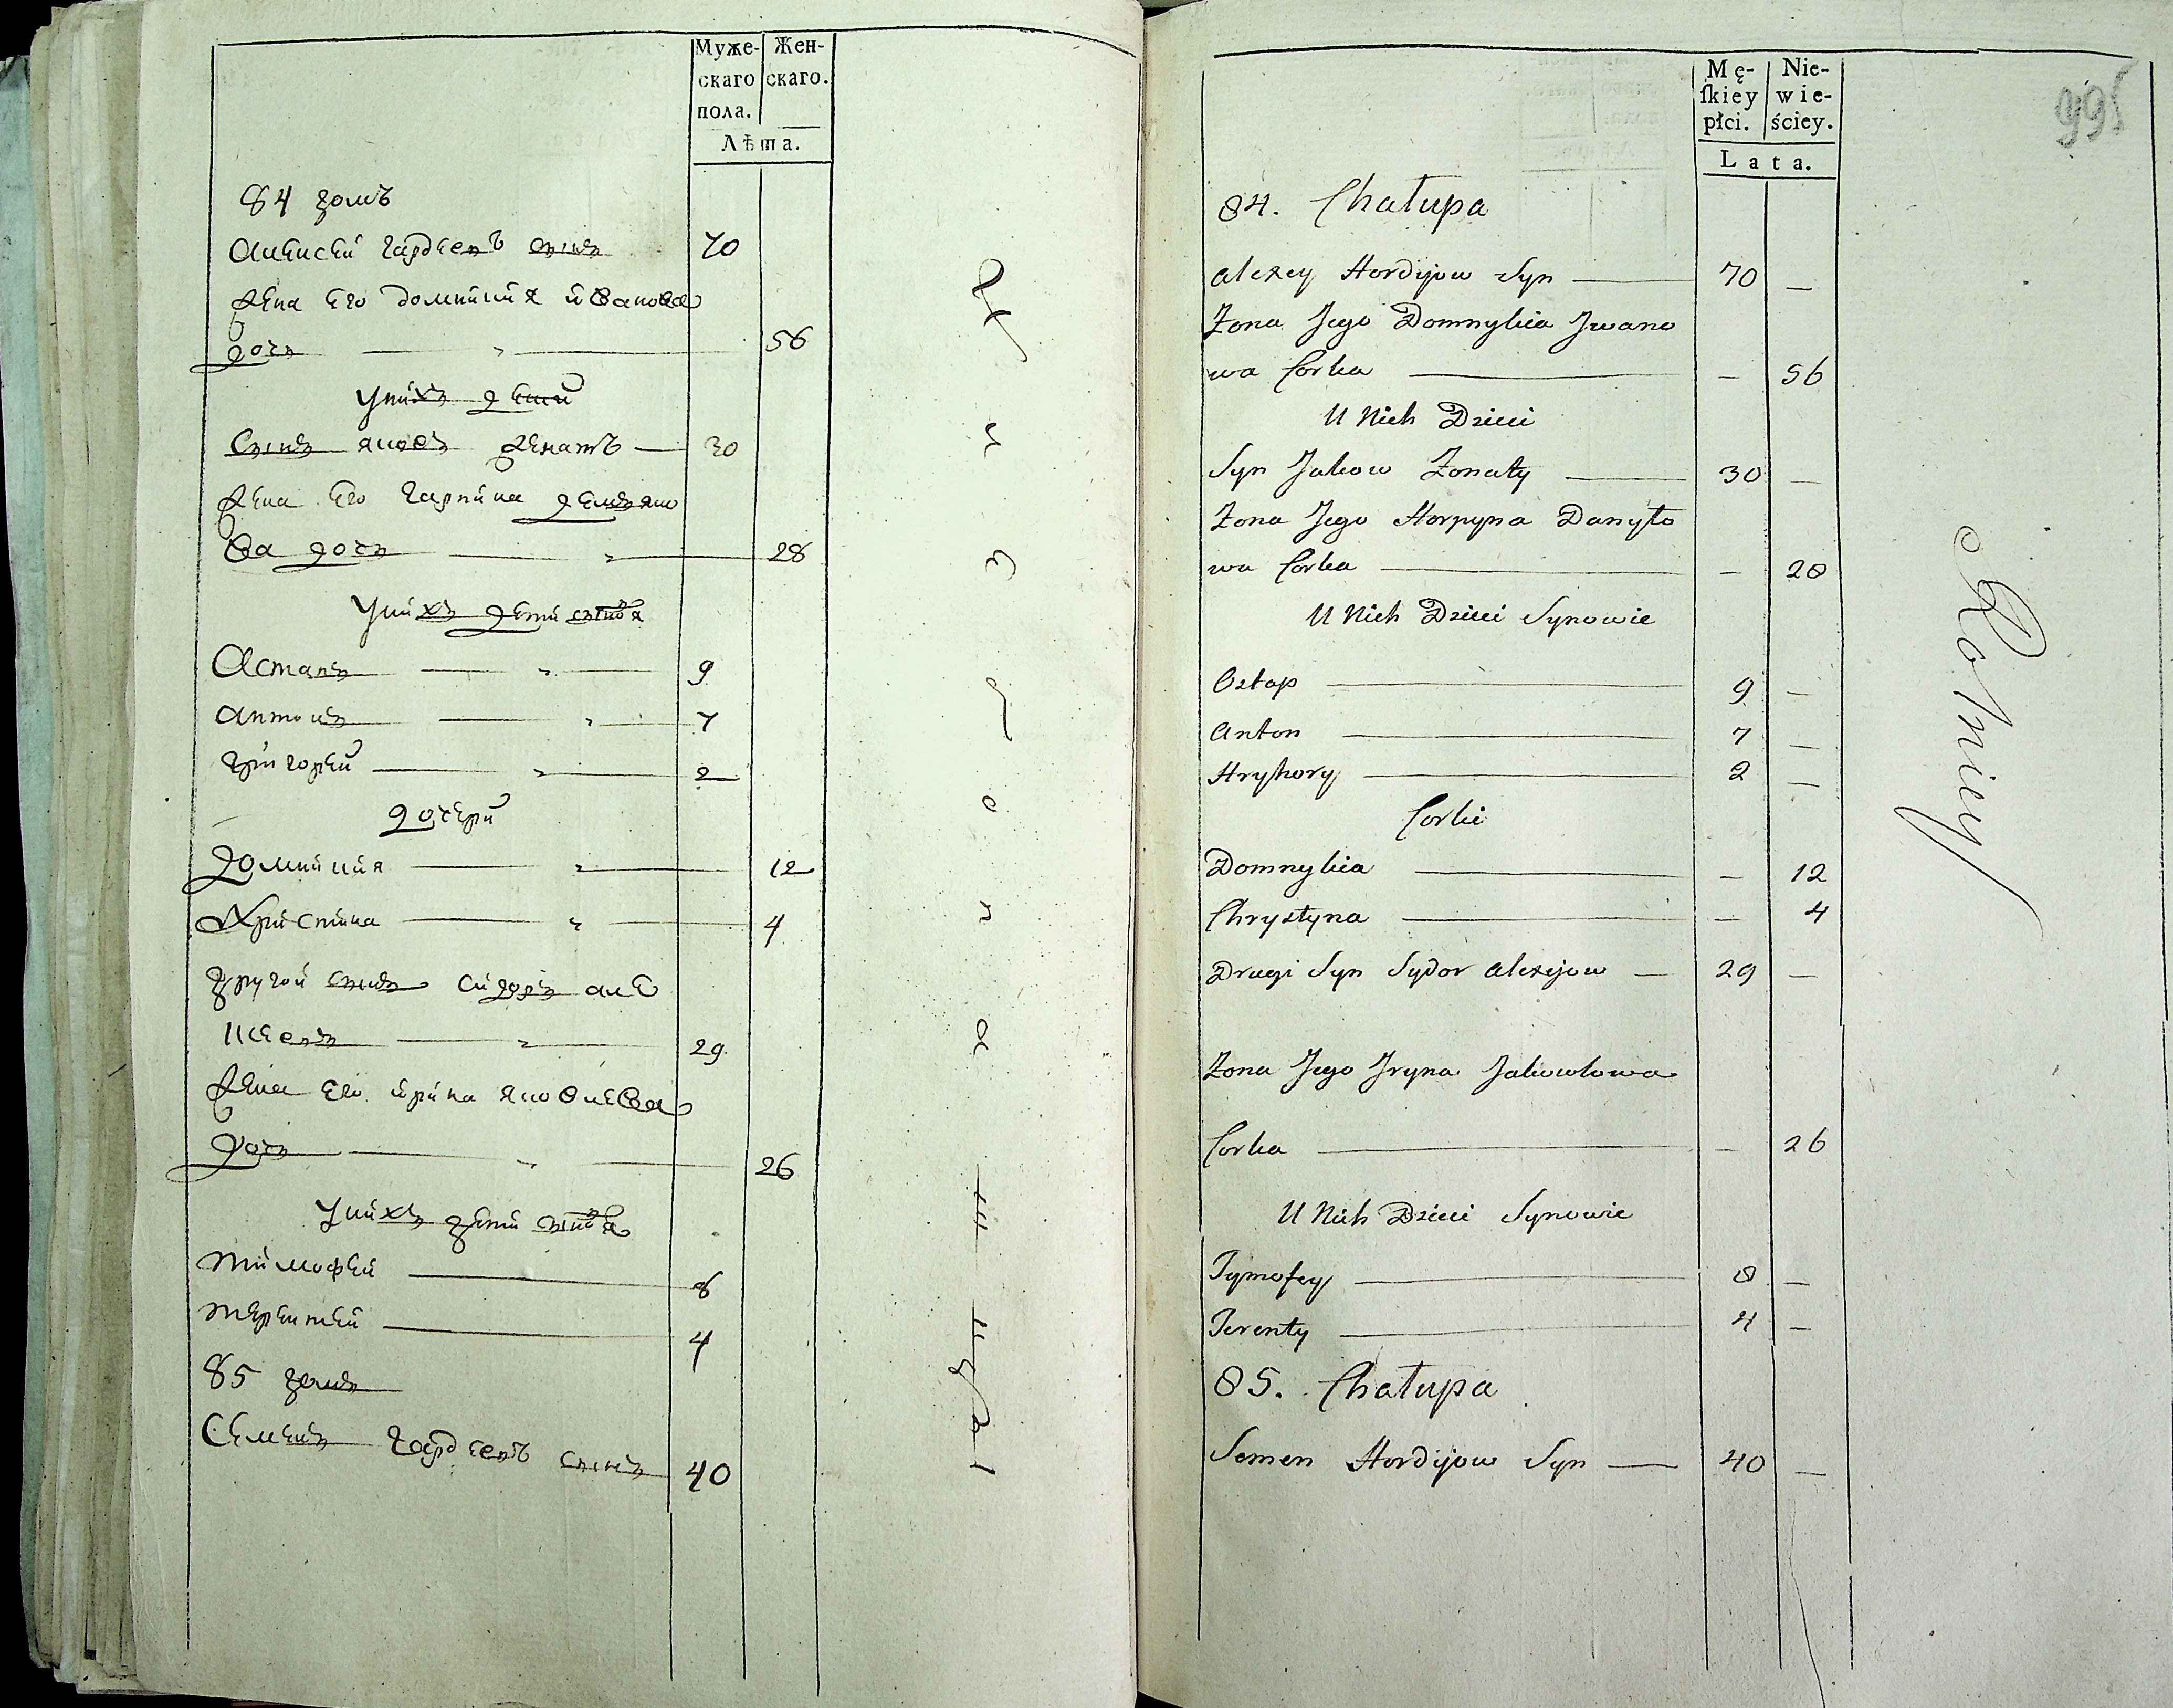 Муже-
скаго
пола.
Жен-
скаго.
Лѣта.
84 домъ
Алексѣй гардеевъ сынъ 70
Жена его домникия ивановa
дочь 56
У нихъ дети
Сынъ яковъ женатъ 30
Жена его гарпина демяно
ва дочь 28
У нихъ дети сыновя
Астапъ 9
Антонъ 7
Григорей 2
дочери
Домникия 12
Христина 4
Другой сынъ сидоръ але
ксеевъ 29
Жена его ирина яковлева
дочь 26
У нихъ дети сыновя
Тимофей 8
Терентей 4
85 домъ
Семенъ гардеевъ сынъ 40
Mę-
ſkiey
płci.
Nie-
wie-
ściey.
Lata.
84. Chałupa
Alexey Hordijow Syn 70 —
Zona Jego Domnykia Jwano
wa Corka — 56
U Nich Dzieci
Syn Jakow Zonaty 30 —
Zona Jego Horpyna Danyło
wa Corka — 28
U Nich Dzieci Synowie
Ostap 9 —
Anton 7 —
Hryhory 2 —
Corki
Domnykia — 12
Chrystyna — 4
Drugi Syn Sydor Alexijow — 29 —
Zona Jego Jryna Jakowlowa
Corka — 26
U Nich Dzieci Synowie
Tymofey 8 —
Terenty 4 —
85. Chałupa
Semen Hordijow Syn — 40 —